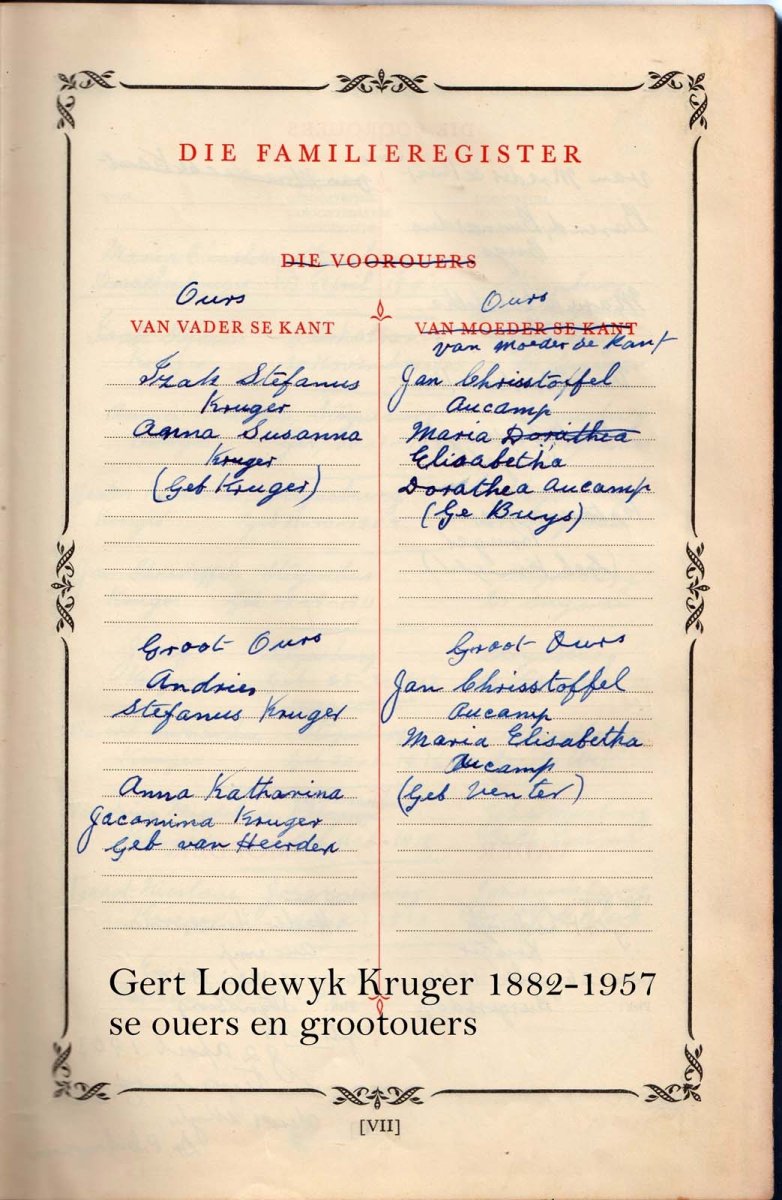 DIE FAMILIEREGISTER
DIE VOOROUERS
Ours
VAN VADER SE KANT
Izak Stefanus
Kruger
Anna Susanna
Kruger
(Geb Kruger)
Groot Ours
Andries
Stefanus Kruger
Anna Katharina
Jacomina Kruger
Geb van Heerden
Ours
VAN MOEDER SE KANT
van Moeder se Kant
Jan Chrisstoffel
Aucamp
Maria Dorathea
Elisabetha
Dorathea Aucamp
(Ge Buys)
Groot Ours
Jan Chrisstoffel
Aucamp
Maria Elisabetha
Aucamp
(Geb Venter)
Gert Lodewyk Kruger 1882-1957
se ouers en grootouers
[VII]